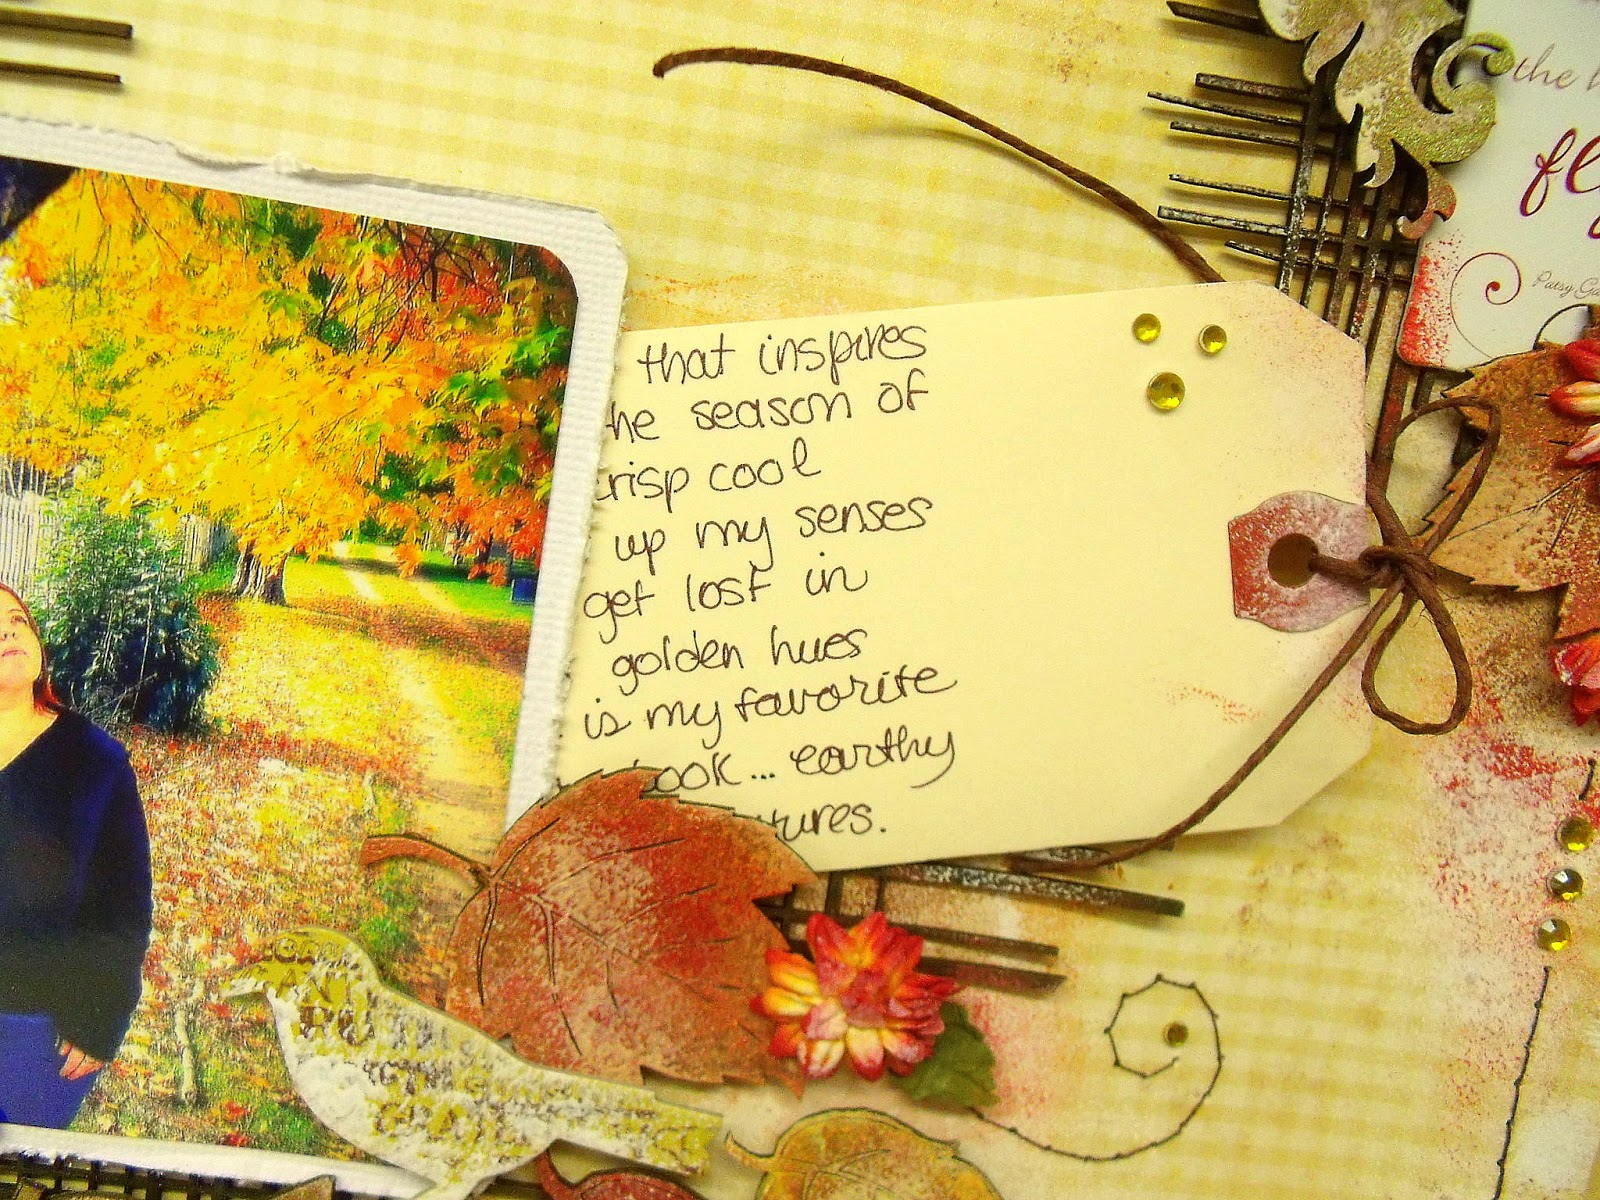 that inspires
he season of
crisp cool
up my senses
get lost in
golden hues
is my favorite
ook... earthy
tures.
the
fly
Patsy Ga